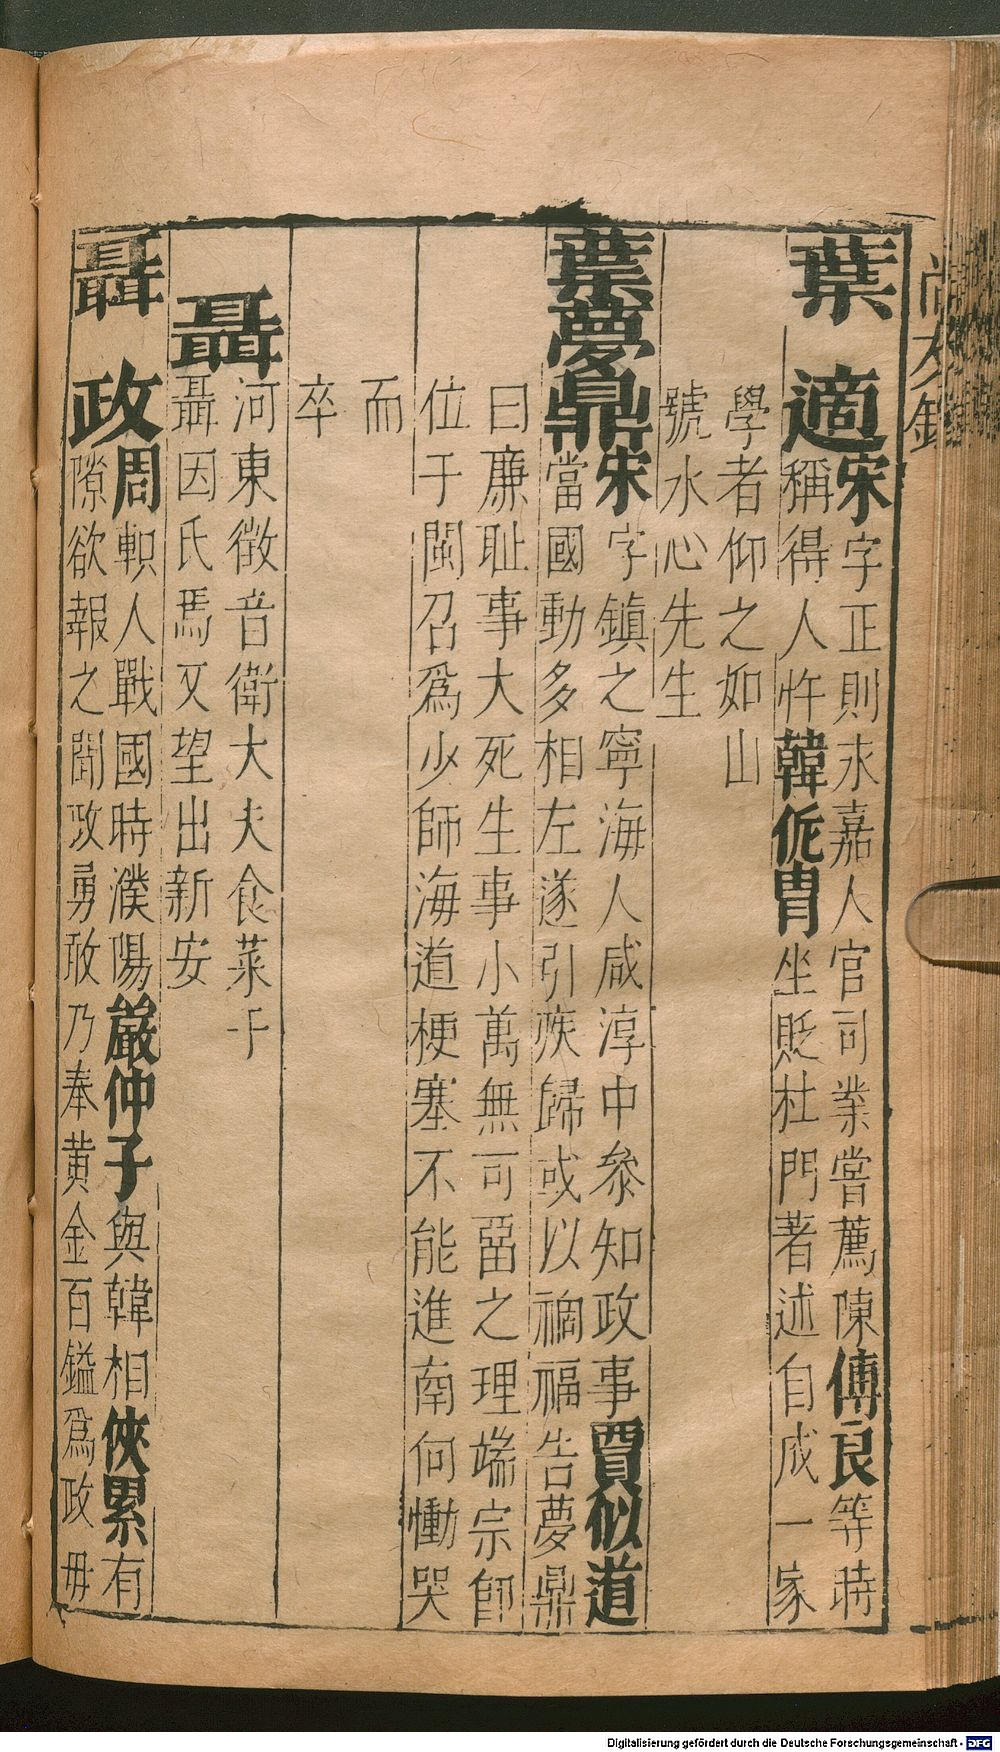 尚友錄
葉適宋字正則永嘉人官司業嘗薦陳傅良等時
稱得人忤韓侂冑坐貶杜門著述自成一家
學者仰之如山
號水心先生
葉夢鼎宋字鎮之寧海人咸淳中叅知政事賈似道
當國動多相左遂引疾歸或以禍福告夢鼎
曰廉耻事大死生事小萬無可畱之理端宗卽
位于閩召爲少師海道梗塞不能進南向慟哭
而
卒
聶
河東徵音衛大夫食菜于
聶因氏焉又望出新安
聶政周軹人戰國時濮陽嚴仲子與韓相俠累有
隙欲報之聞政勇敢乃奉黃金百鎰爲政毋
Digitalisierung gefördert durch die Deutsche Forschungsgemeinschaft - DFG